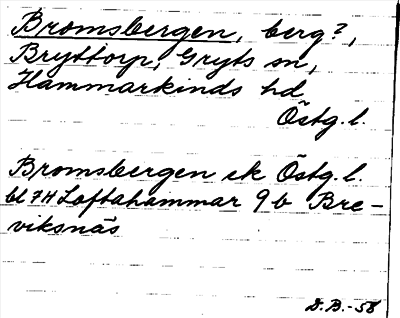 Bromsbergen, berg?,
Bryttorp, Gryts sn,
Hammarkinds hd
Östg. l.
Bromsbergen ek Östg. l.
bl 7H Loftahammar 9 b Bre-
viksnäs
D. B. - 58